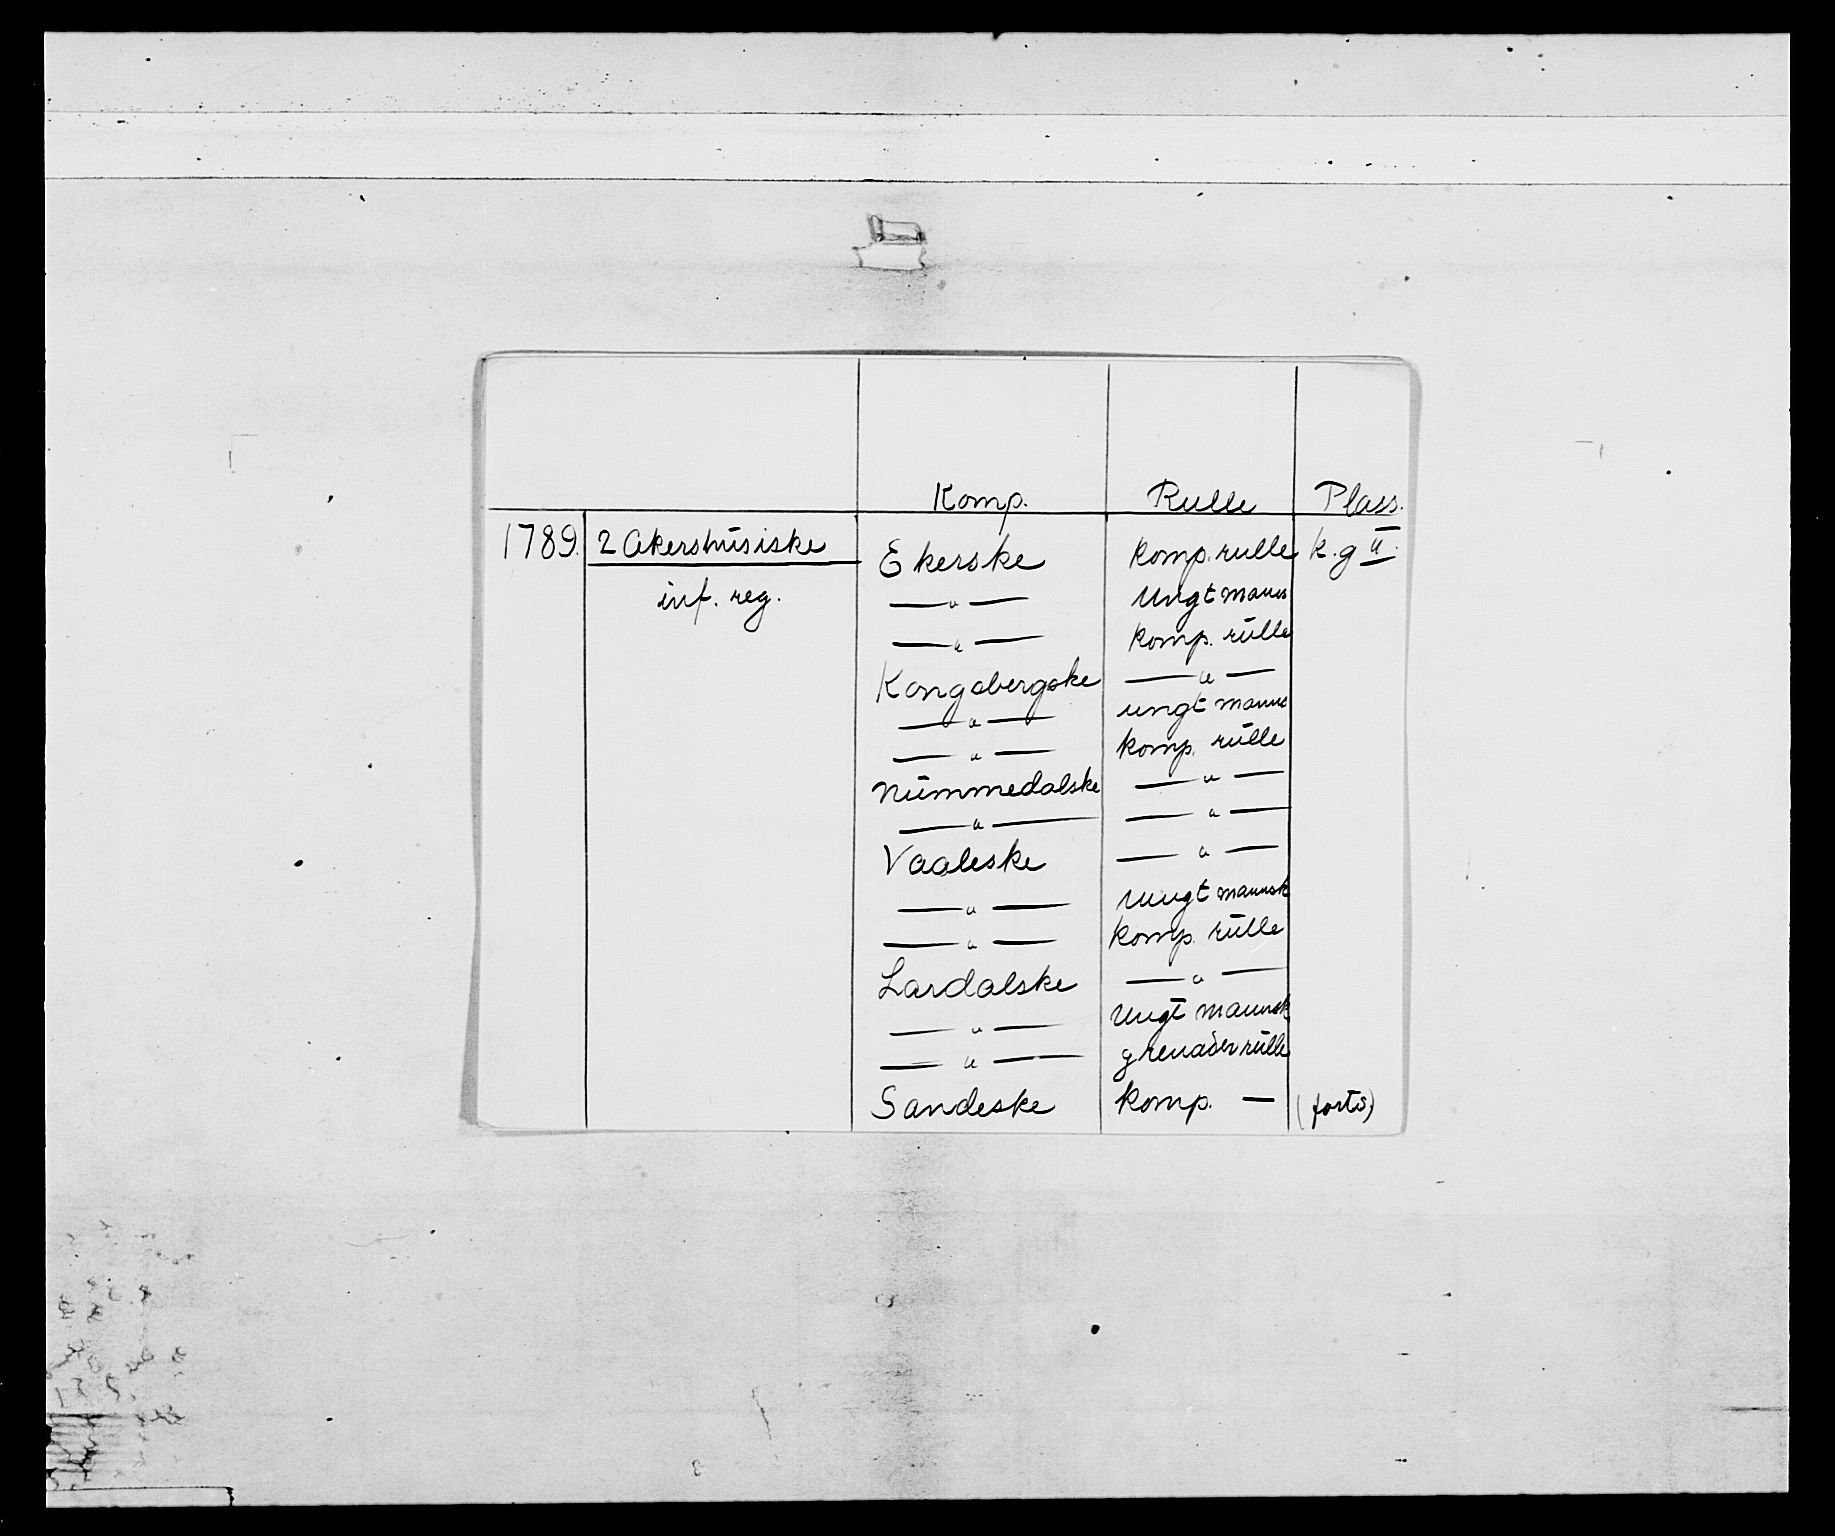 Komp. Rulle Plass.
1789. 2 Akershusiske Ekerske komp. rulle k.g II.
inf. reg. — " — Ungt mans
— " — komp. rulle
Kongsbergske — " —
— " — ungt mans
— " — komp. rulle
Nummedalske — " —
— " — — " —
Vaaleske — " —
— " — Ungt mansk
— " — komp. rulle
Lardalske — " —
— " — Ungt mansk
— " — grenader rulle
Sandeske komp. — (forts)